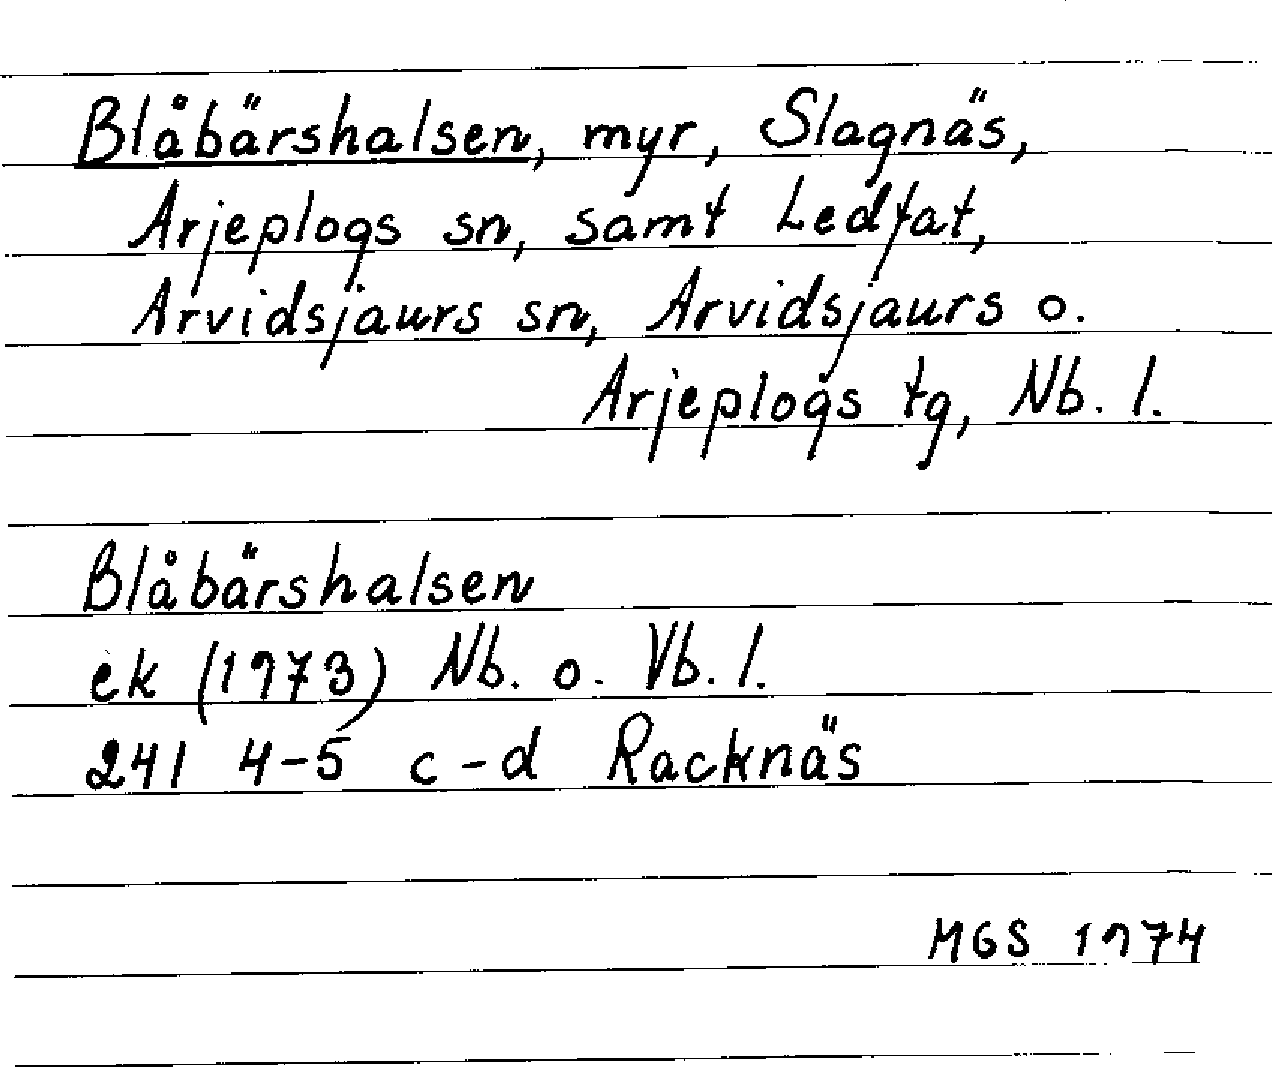 Blåbärshalsen, myr, Slagnäs,
Arjeplogs sn, samt Ledfat,
Arvidsjaurs sn, Arvidsjaurs o.
Arjeplogs tg, Nb. l.
Blåbärshalsen
ek (1973) Nb. o. Vb. l.
241 4-5 c-d Racknäs
MGS 1974